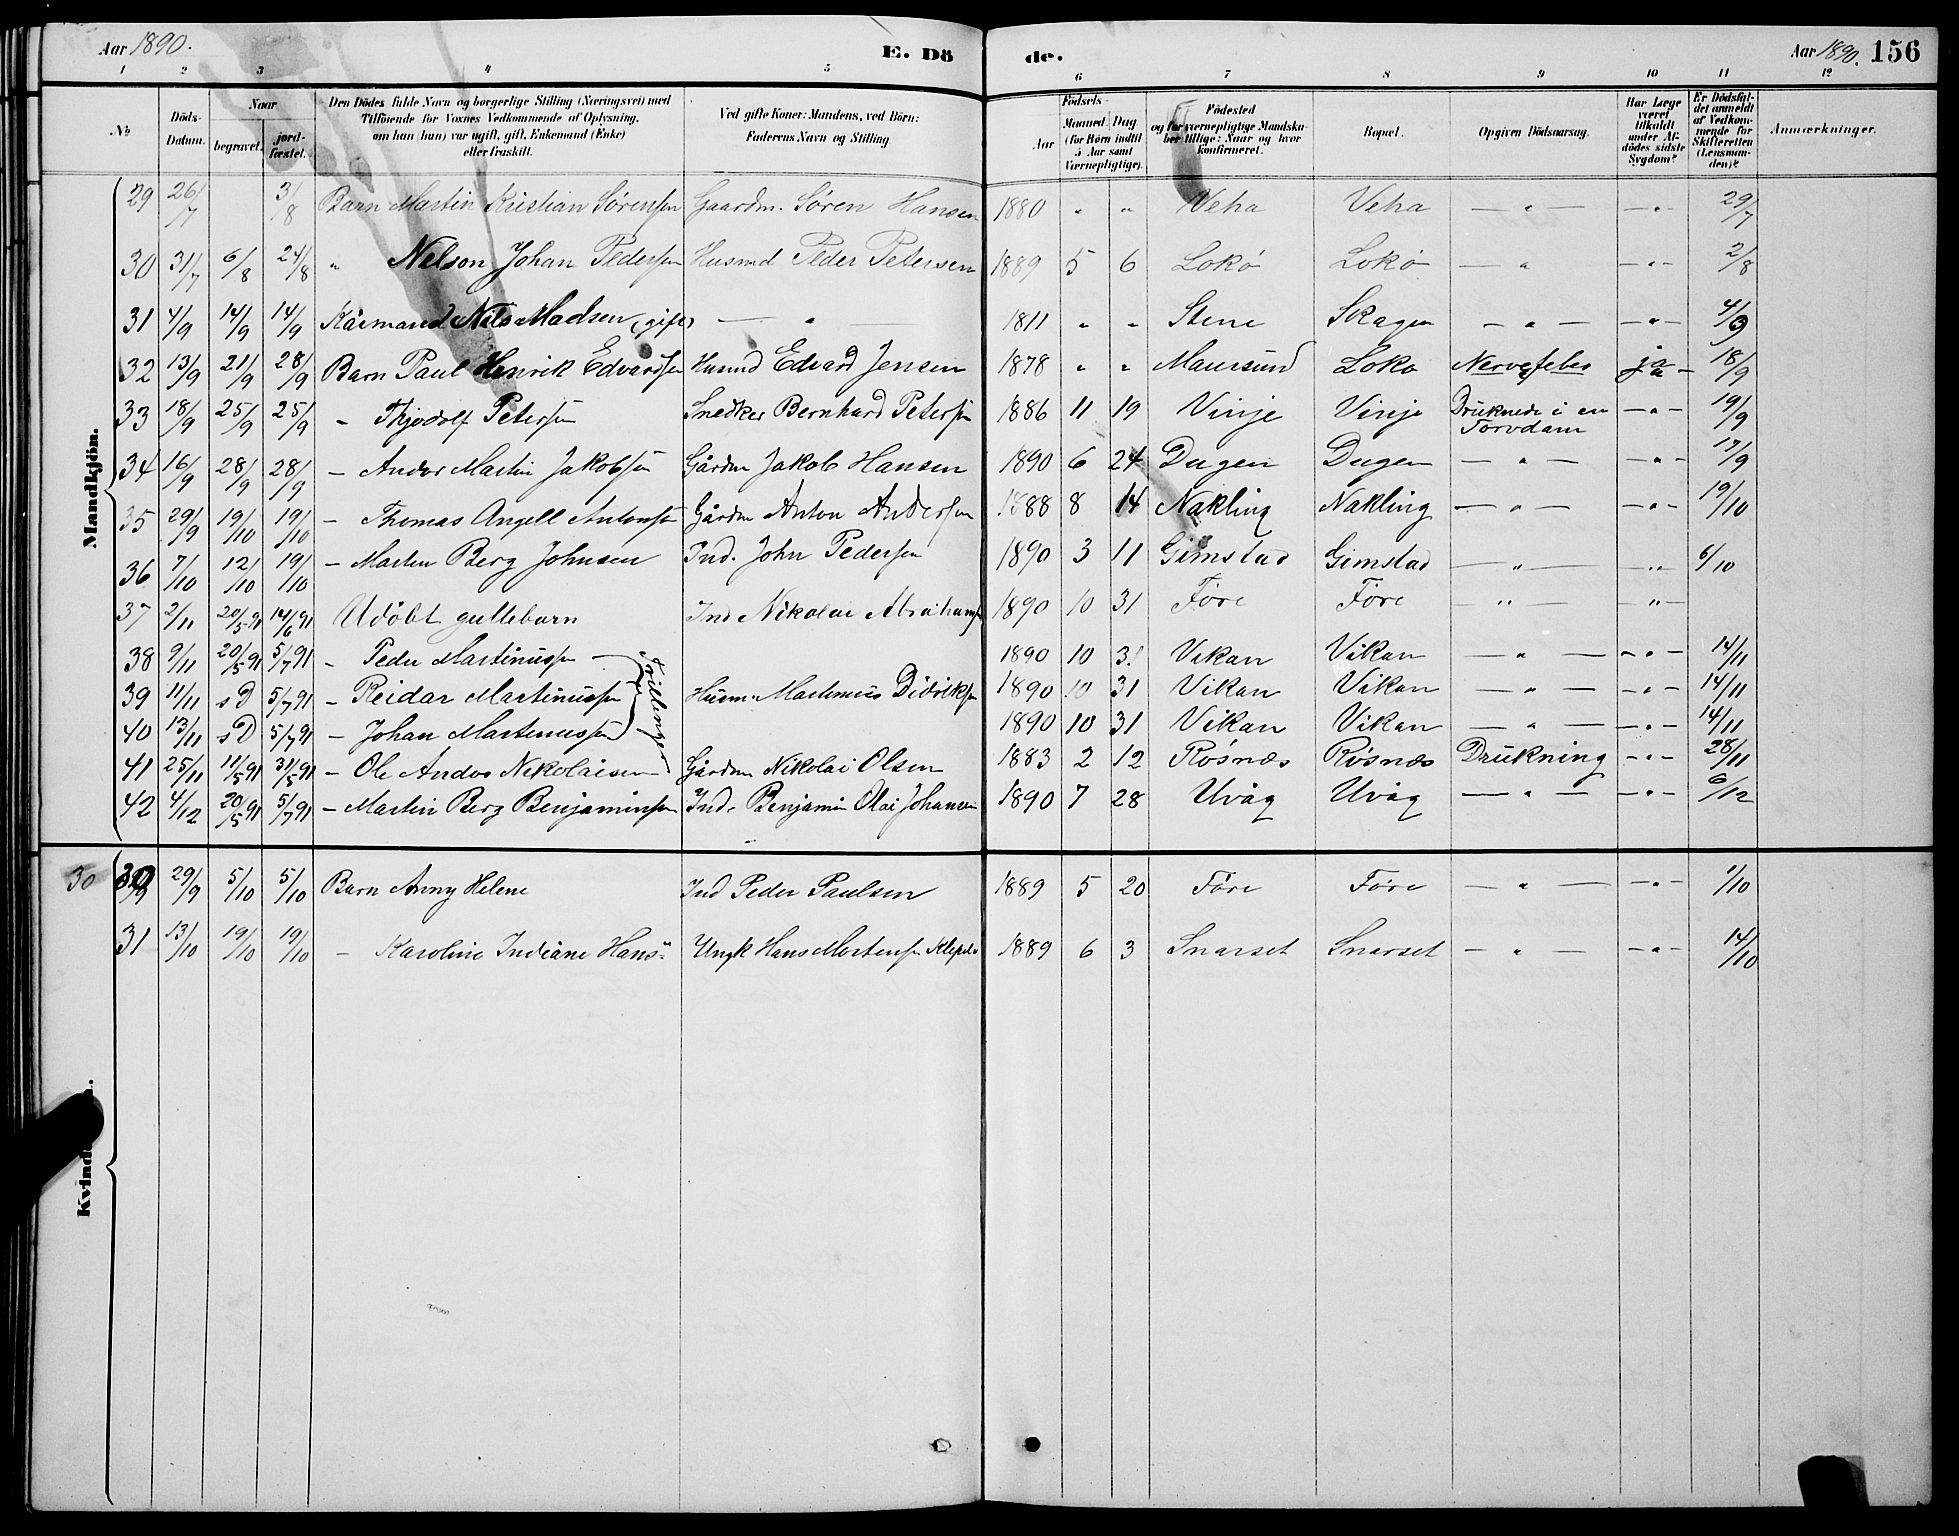 Aar 1890. E. Dö de. Aar 1890. 156
1 2 3 4 5 6 7 8 9 10 11 12
No Döds-Datum. Naar begravet. jord-fæstet. Den Dödes fulde Navn og borgerlige Stilling (Næringsvei) med Tilföiende for Voxnes Vedkommende af Oplysning, om han (hun) var ugift, gift, Enkemand (Enke) eller fraskilt. Ved gifte Koner: Mandens, ved Börn: Faderens Navn og Stilling. Födsels- Aar Maaned Dag (for Börn indtil 5 Aar samt Værnepligtige). Födested og for værnepligtige Mandska-ber tillige: Naar og hvor konfirmeret. Bopæl. Opgiven Dödsaarsag. Har Læge været tilkaldt under Af-dödes sidste Sygdom? Er Dödsfal-det anmeldt af Vedkom-mende for Skifteretten (Lensman-den)? Anmærkninger.
Mandkjön.
29 26/7 3/8 Barn Martin Kristian Sörensen Gaardm. Sören Hansen 1880 " " Veha Veha — " — — " — 29/7
30 31/7 6/8 24/8 " Nelson Johan Pedersen Husmd Peder Petersen 1889 5 6 Lokö Lokö — " — — " — 2/8
31 4/9 14/9 14/9 Kårmand Nils Madsen (gift) — " — 1811 " " Stene Skagen — " — — " — 4/9
32 13/9 21/9 28/9 Barn Paul Henrik Edvardsen Husmd Edvard Jensen 1878 " " Maursund Loko Nervefeber ja 18/9
33 18/9 25/9 25/9 — Thjodolf Petersen Snedker Bernhard Petersen 1886 11 19 Vinje Vinje Druknede i en Torvdam — " — 19/9
34 16/9 28/9 28/9 — Andor Martin Jakobsen Gårdm Jakob Hansen 1890 6 24 Dugen Dugen — " — — " — 17/9
35 29/9 19/10 19/10 — Thomas Angell Antonsen Gårdm Anton Andersen 1888 8 14 Nakling Nakling — " — — " — 19/10
36 7/10 12/10 19/10 — Martin Berg Johnsen Ind. John Pedersen 1890 3 11 Gimstad Gimstad — " — — " — 6/10
37 2/11 20/5 91 14/6 91 Udöbt guttebarn Ind Nikolai Abrahams 1890 10 31 Före Före — " — — " —
38 9/11 20/5 91 5/7 91 — Peder Martinussen — 1890 10 31 Vikan Vikan — " — — " — 14/11
39 11/11 sD 5/7 91 — Reidar Martinussen Husm. Martinius Didriksen 1890 10 31 Vikan Vikan — " — — " — 14/11
Trillinger
40 13/11 sD 5/7 91 — Johan Martinussen 1890 10 31 Vikan Vikan — " — — " — 14/11
41 25/11 11/5 91 31/5 91 — Ole Andor Nikolaisen Gårdm Nikolai Olsen 1883 2 12 Rösnæs Rösnæs Drukning — " — 28/11
42 4/12 20/5 91 5/7 91 — Martin Berg Benjaminsen Ind. Benjamin Olai Johansen 1890 7 28 Uvåg Uvåg — " — — " — 6/12
30 29/9 5/10 5/10 Barn Anny Helene Ind Peder Paulsen 1889 5 20 Före Före — " — — " — 1/10
31 13/10 19/10 19/10 — Karoline Indiane Hans" Ungk Hans Mortensen 1889 6 3 Snarset Snarset — " — — " — 14/10
Kvind